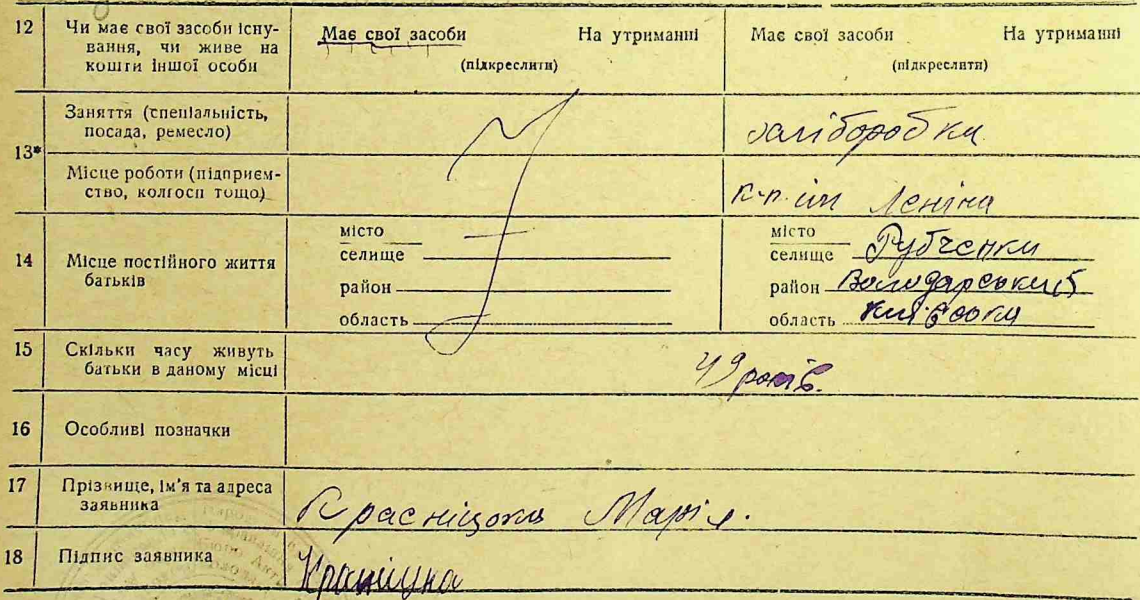 12 Чи має свої засоби існу-
вання, чи живе на
кошти іншої особи
Має свої засоби На утриманні
(підкреслити)
Має свої засоби На утриманні
(підкреслити)
13*
Заняття (спеціальність,
посада, ремесло)
хліборобка
Місце роботи (підприєм-
ство, колгосп тощо)
к-п. ім Леніна
14 Місце постійного життя
батьків
місто
селище
район
область
місто
селище Рубченки
район Володарський
область Київська
15 Скільки часу живуть
батьки в даному місці
49 років.
16 Особливі позначки
17 Прізвище, ім'я та адреса
заявника
Красніцька Марія.
18 Підпис заявника